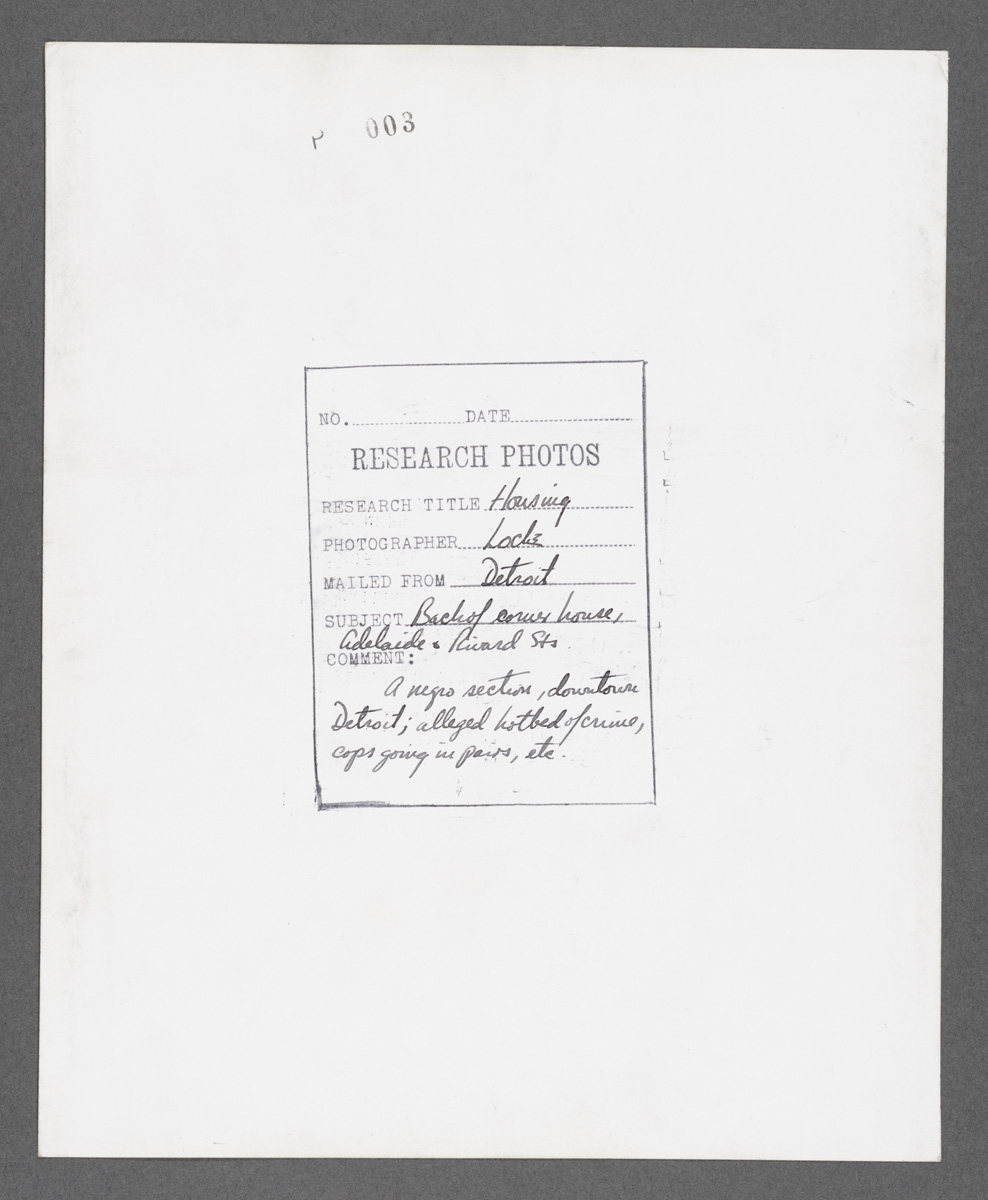 P 003
NO. DATE
RESEARCH PHOTOS
RESEARCH TITLE Housing
PHOTOGRAPHER Locke
MAILED FROM Detroit
SUBJECT Back of corner house,
Adelaide & Rivard Sts.
COMMENT:
A negro section, downtown
Detroit; alleged hotbed of crime,
cops going in pairs, etc.